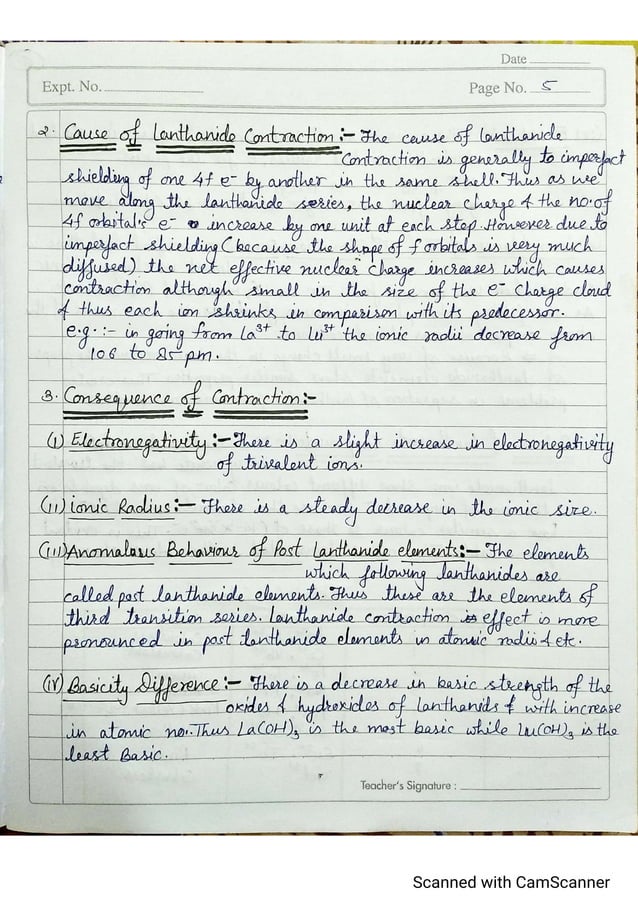 Date
Expt. No.
Page No. 5
2. Cause of Lanthanide Contraction :- The cause of lanthanide
Contraction is generally to imperfact
shielding of one 4f e- by another in the same shell. Thus as we
move along the lanthanide series, the nuclear charge & the no. of
4f orbital's e- increase by one unit at each step. However due to
imperfact shielding (because the shape of f orbitals is very much
diffused) the net effective nuclear charge increases which causes
contraction although small in the size of the e- charge cloud
& thus each ion shrinks in comparison with its predecessor.
e.g. :- in going from La3+ to Lu3+ the ionic radii decrease from
106 to 85 pm.
3. Consequence of Contraction :-
(i) Electronegativity :- There is a slight increase in electronegativity
of trivalent ions.
(ii) ionic Radius :- There is a steady decrease in the ionic size.
(iii) Anomalasis Behaviour of Post Lanthanide elements :- The elements
which following lanthanides are
called post lanthanide elements. Thus these are the elements of
third transition series. Lanthanide contraction effect is more
pronounced in post lanthanide elements in atomic radii & etc.
(iv) Basicity Difference :- There is a decrease in basic strength of the
oxides & hydroxides of lanthanids & with increase
in atomic no. Thus La(OH)3 is the most basic while Lu(OH)3 is the
least Basic.
Teacher's Signature :
Scanned with CamScanner